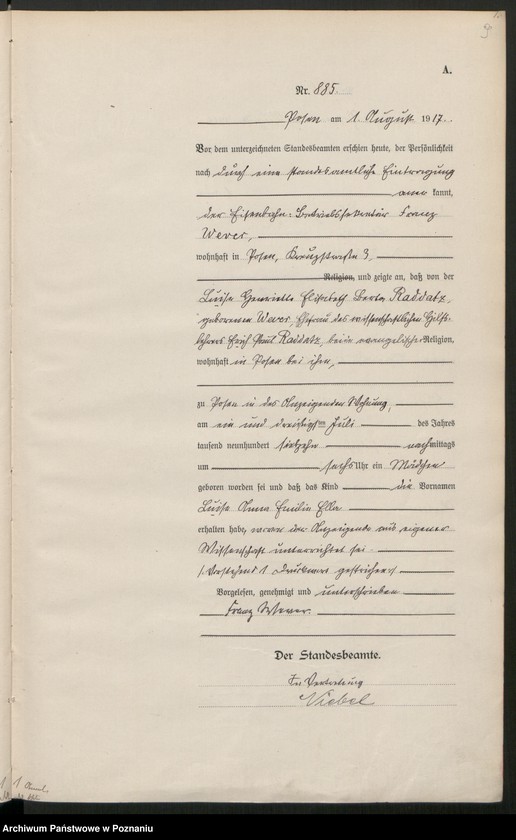 A.
Nr. 885.
Posen am 1. August 1917.
Vor dem unterzeichneten Standesbeamten erschien heute, der Persönlichkeit
nach durch eine standesamtliche Eintragung
aner kannt,
der Eisenbahn-Betriebssekretär Franz
Wever,
wohnhaft in Posen, Kreuzstraße 3,
Religion, und zeigte an, daß von der
Luise Henriette Elisabeth Berta Raddatz,
geborenen Wever, Ehefrau des wissenschaftlichen Hilfs-
lehrers Erich Paul Raddatz, beide evangelischer Religion,
wohnhaft in Posen bei ihm,
zu Posen in des Anzeigenden Wohnung,
am ein und dreißigsten Juli des Jahres
tausend neunhundert siebzehn nachmittags
um sechs Uhr ein Mädchen
geboren worden sei und daß das Kind die Vornamen
Luise Anna Emilie Ella
erhalten habe, wovon der Anzeigende aus eigener
Wissenschaft unterrichtet sei.
Vorstehend 1 Druckwort gestrichen
Vorgelesen, genehmigt und unterschrieben
Franz Wever.
Der Standesbeamte.
In Vertretung
Niebel
Archiwum Państwowe w Poznaniu